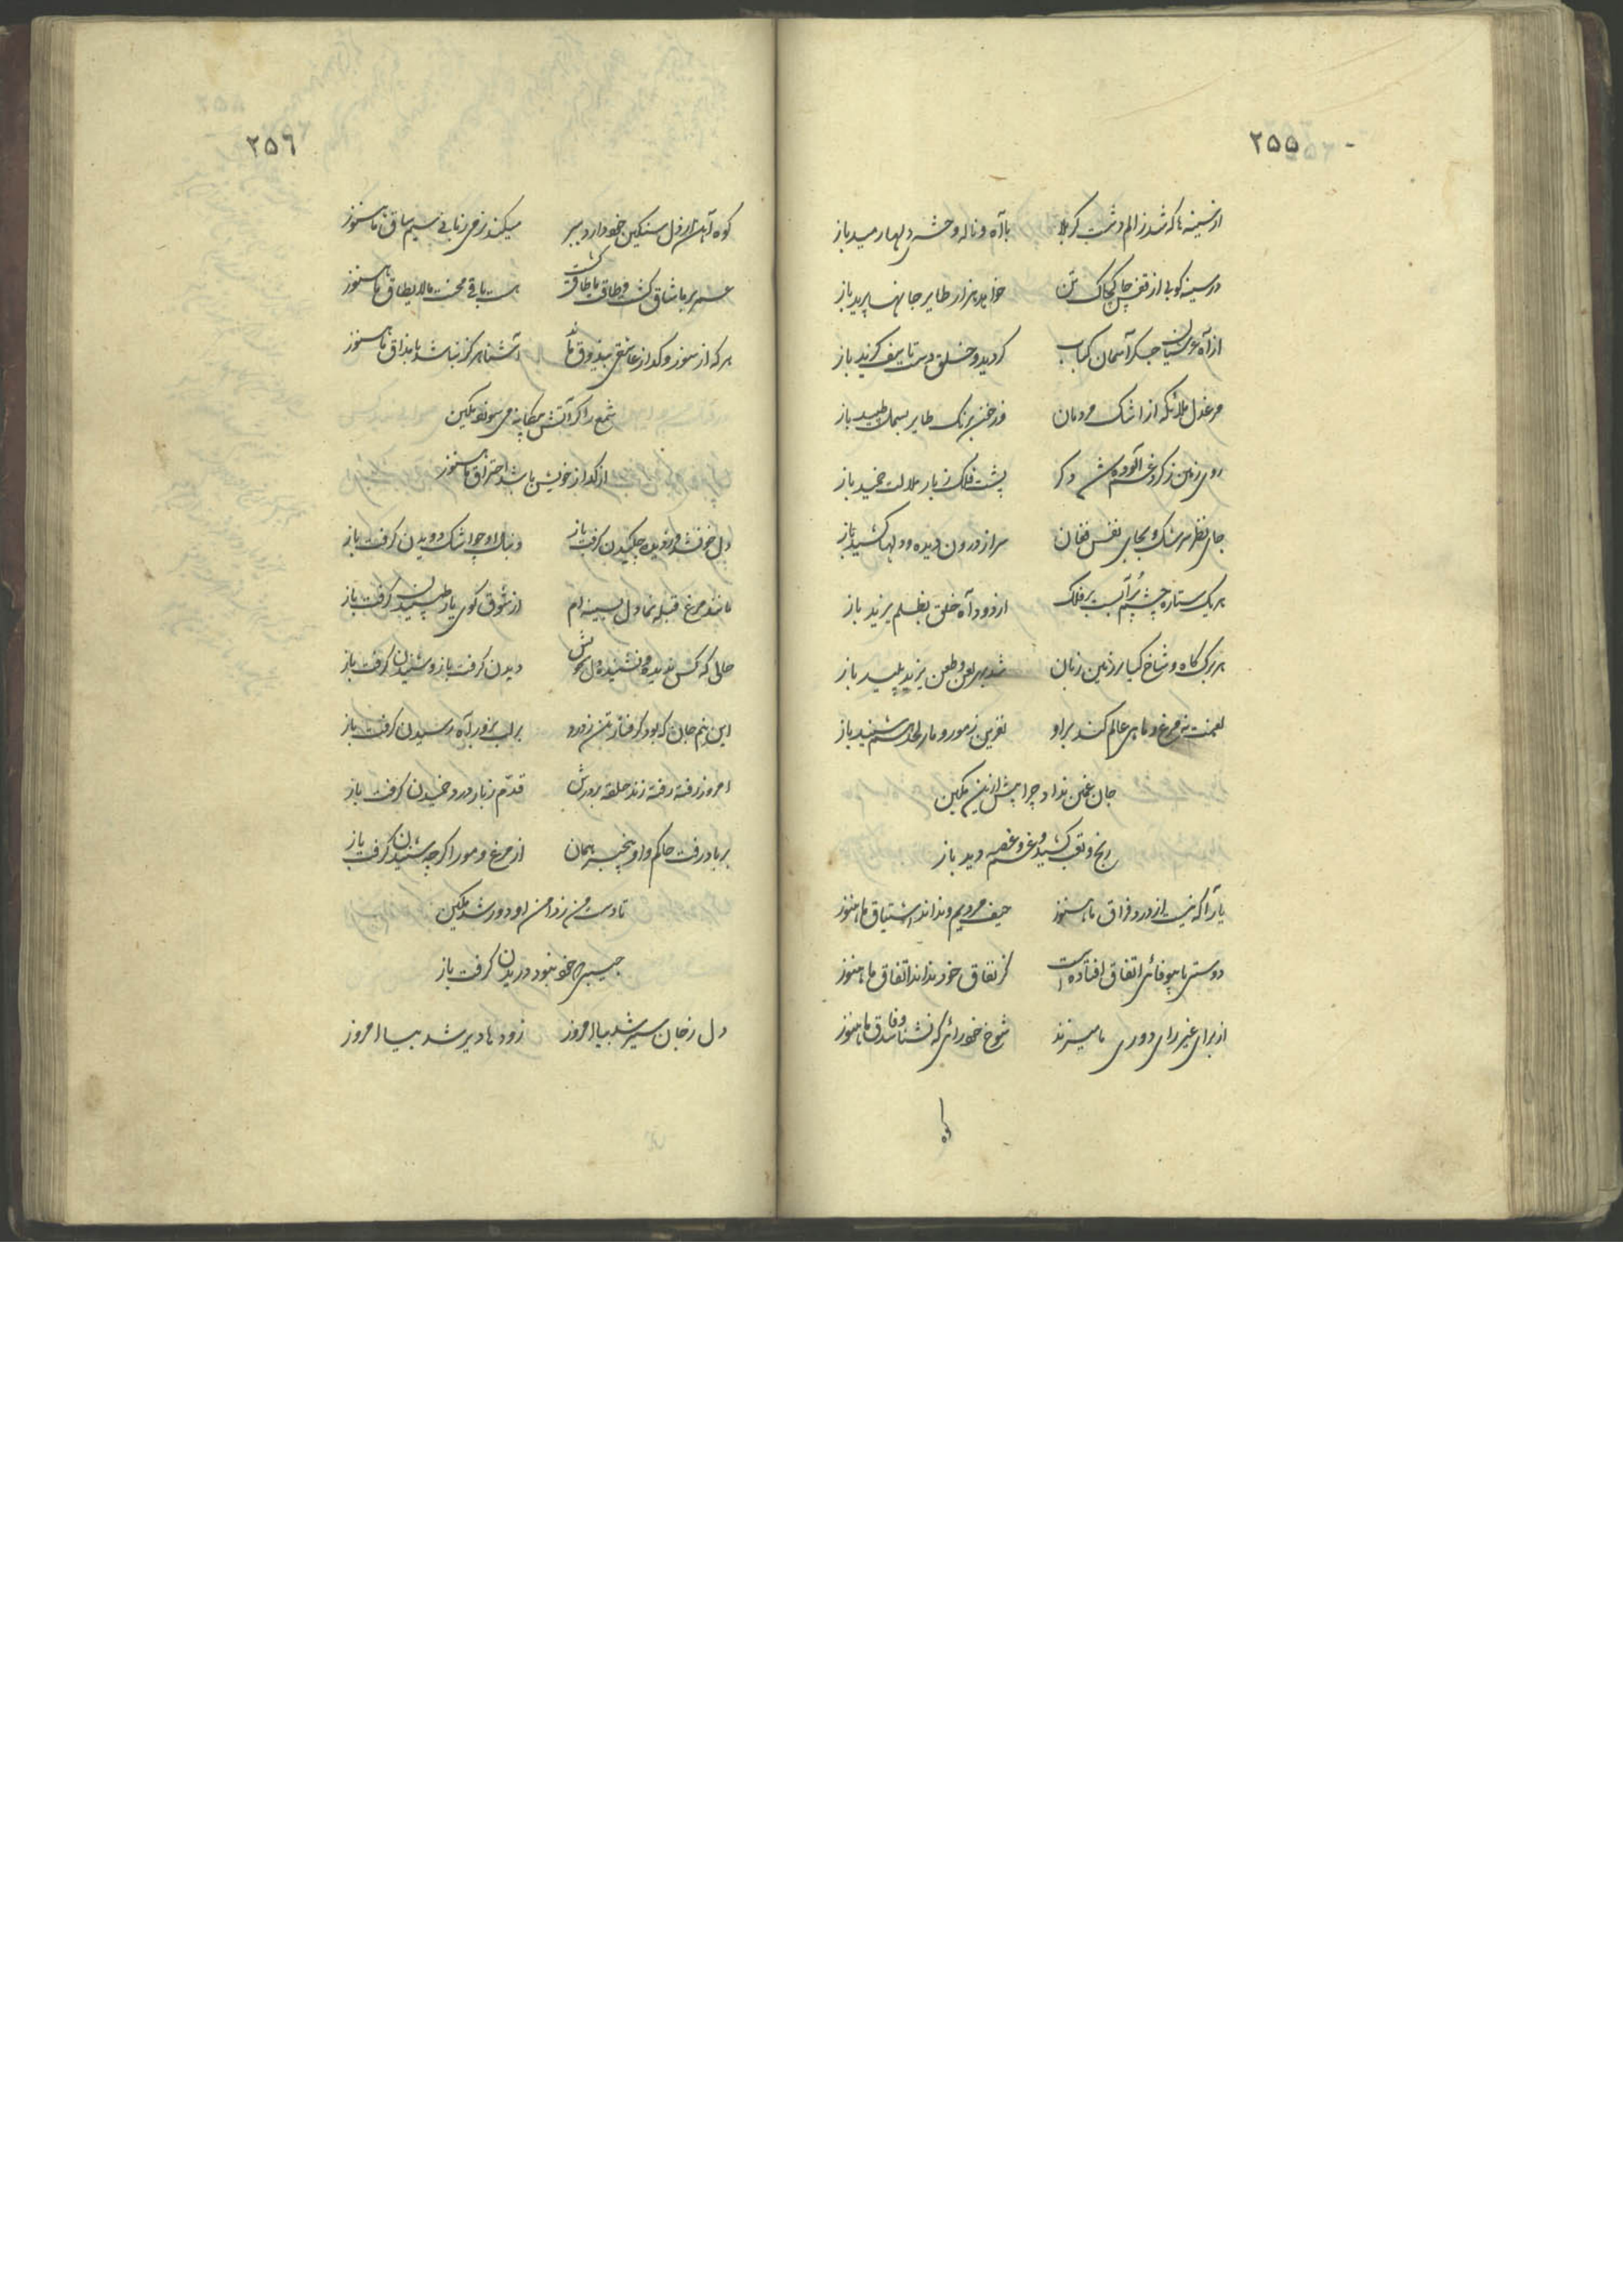 ۲۵۵
از سینه ها که شد ز الم دشت کربلا با آه و ناله وحشی دلها رمید باز
در سینه کوبی از قفس چاک چاک تن خواهد هزار طایر جانها پرید باز
از آه عرشیان جگر آسمان کباب گردید و خلق دست تاسف گزید باز
مرغ دل ملائکه از اشک مردمان در خون برنگ طایر بسمل طپید باز
روی زمین ز گرد غم آلوده شد دگر پشت فلک ز بار ملالت خمید باز
جای نظر سرشک و بجای نفس فغان سر از درون دیده و دلها کشید باز
هر یک ستاره چشم پر آبست بر فلک از دود آه خلق بظلم یزید باز
هر برگ کاه و شاخ گیا بر زمین زبان شد بهر لعن و طعن یزید پلید باز
لعنت نه مرغ و ماهی عالم کند براو نفرین ز مور و مار لحد هم شنید باز
جان غمین نداد چرا پیش ازین مکین
رنج و تعب کشید و غم و غصه دید باز
یار آگه نیست از درد فراق ما هنوز حیف مردیم و نداند اشتیاق ما هنوز
دوستی با بیوفائی اتفاق افتاده است کز نفاق خود نداند اتفاق ما هنوز
از برای غیر رای دوری ما میزند شوخ خود رائی که نشناسد وفاق ما هنوز
کوه
۲۵۶
کوه آهن از دل سنگین خود دارد ببر میکند زمی زمانی سیم ساق ما هنوز
عمر بر ما شاق گشت و طاق ما طاقت گشت هست باقی محنت مالایطاق ما هنوز
هر که از سوز و گداز عاشقی بیذوق ماند آشنا هرگز نباشد با مذاق ما هنوز
شمع را گر آتش بیگانه می سوزد مکین
از گداز خویش باشد احتراق ما هنوز
دل خون شد و ز دیده چکیدن گرفت باز دنبال او چو اشک دویدن گرفت باز
ماند مرغ قبله نما دل بسینه ام از شوق کوی یار طپیدن گرفت باز
حالی که کس ندیده و نشنیده دل خوش دیدن گرفت باز و شنیدن گرفت باز
این نیم جان که بود گرفتار تن ز درد بر لب بزور آه رسیدن گرفت باز
امروز رفته رفته زند حلقه بر درش قدم ز بار درد خمیدن گرفت باز
بر باد رفت خاکم و او بیخبر همان از مرغ و مور اگر چه شنیدن گرفت باز
تا دست من ز دامن او دور شد مکین
جیب خود بخود دریدن گرفت باز
دل ز جان سیر شد بیا امروز زود ها دیر شد بیا امروز